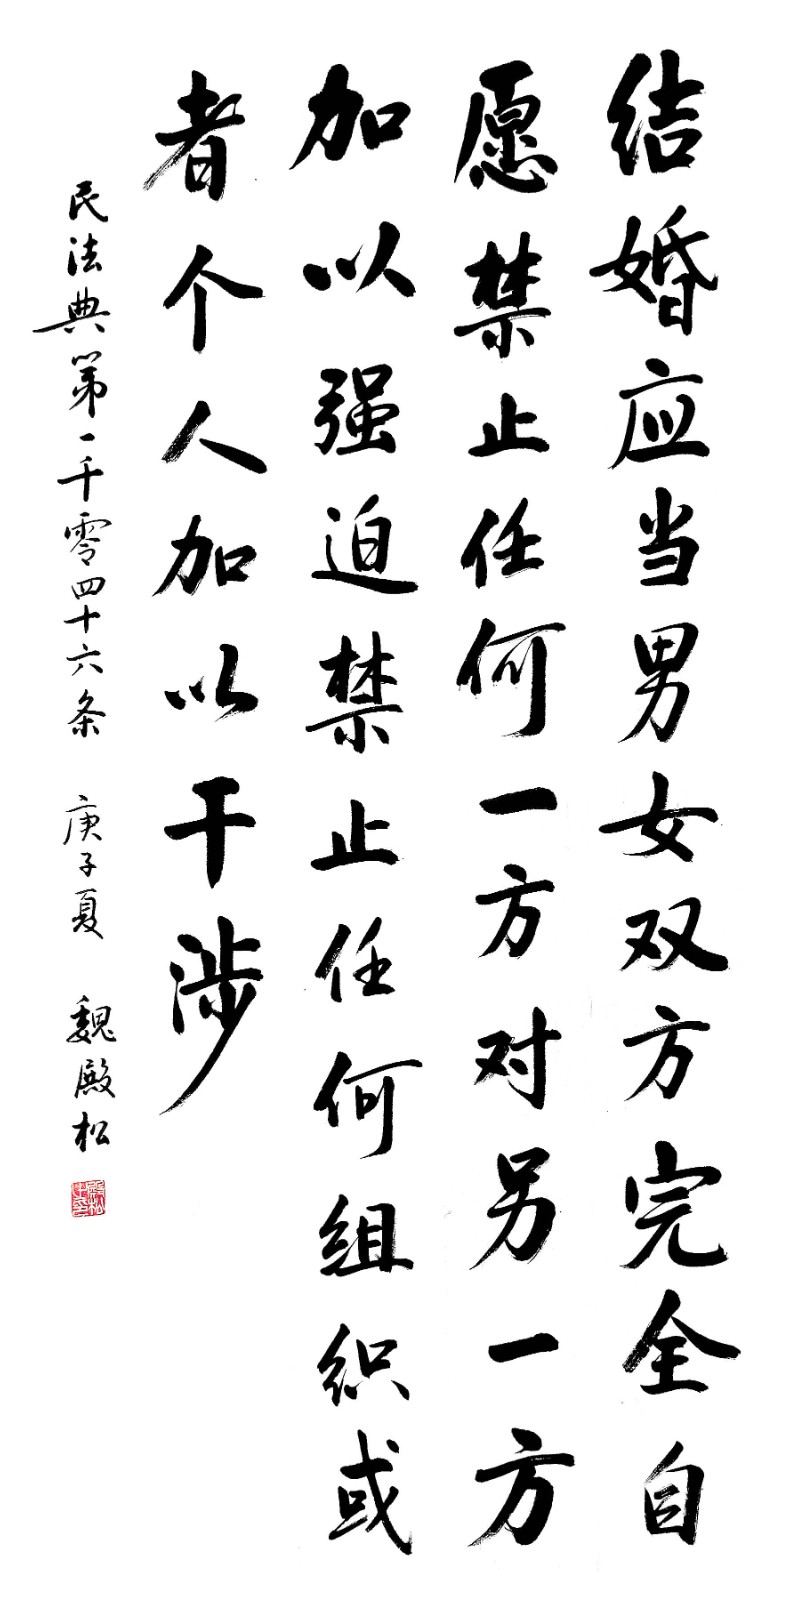 结婚应当男女双方完全自
愿禁止任何一方对另一方
加以强迫禁止任何组织或
者个人加以干涉
民法典第一千零四十六条 庚子夏 魏殿松